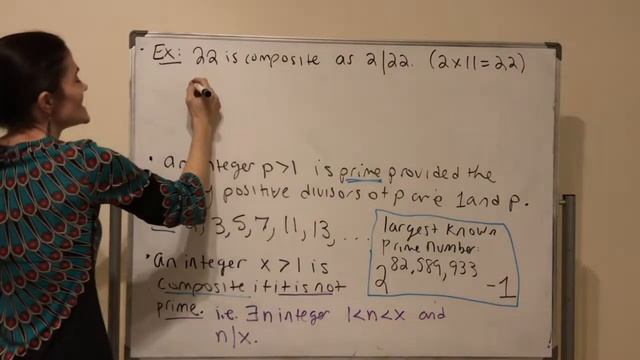 · Ex: 22 is composite as 2|22. (2x11=22)
· an integer p>1 is prime provided the
positive divisors of p are 1 and p.
3, 5, 7, 11, 13, ...
largest known
prime number:
2^82,589,933 -1
· an integer x>1 is
composite if it is not
prime. i.e. ∃ n integer 1<n<x and
n|x.